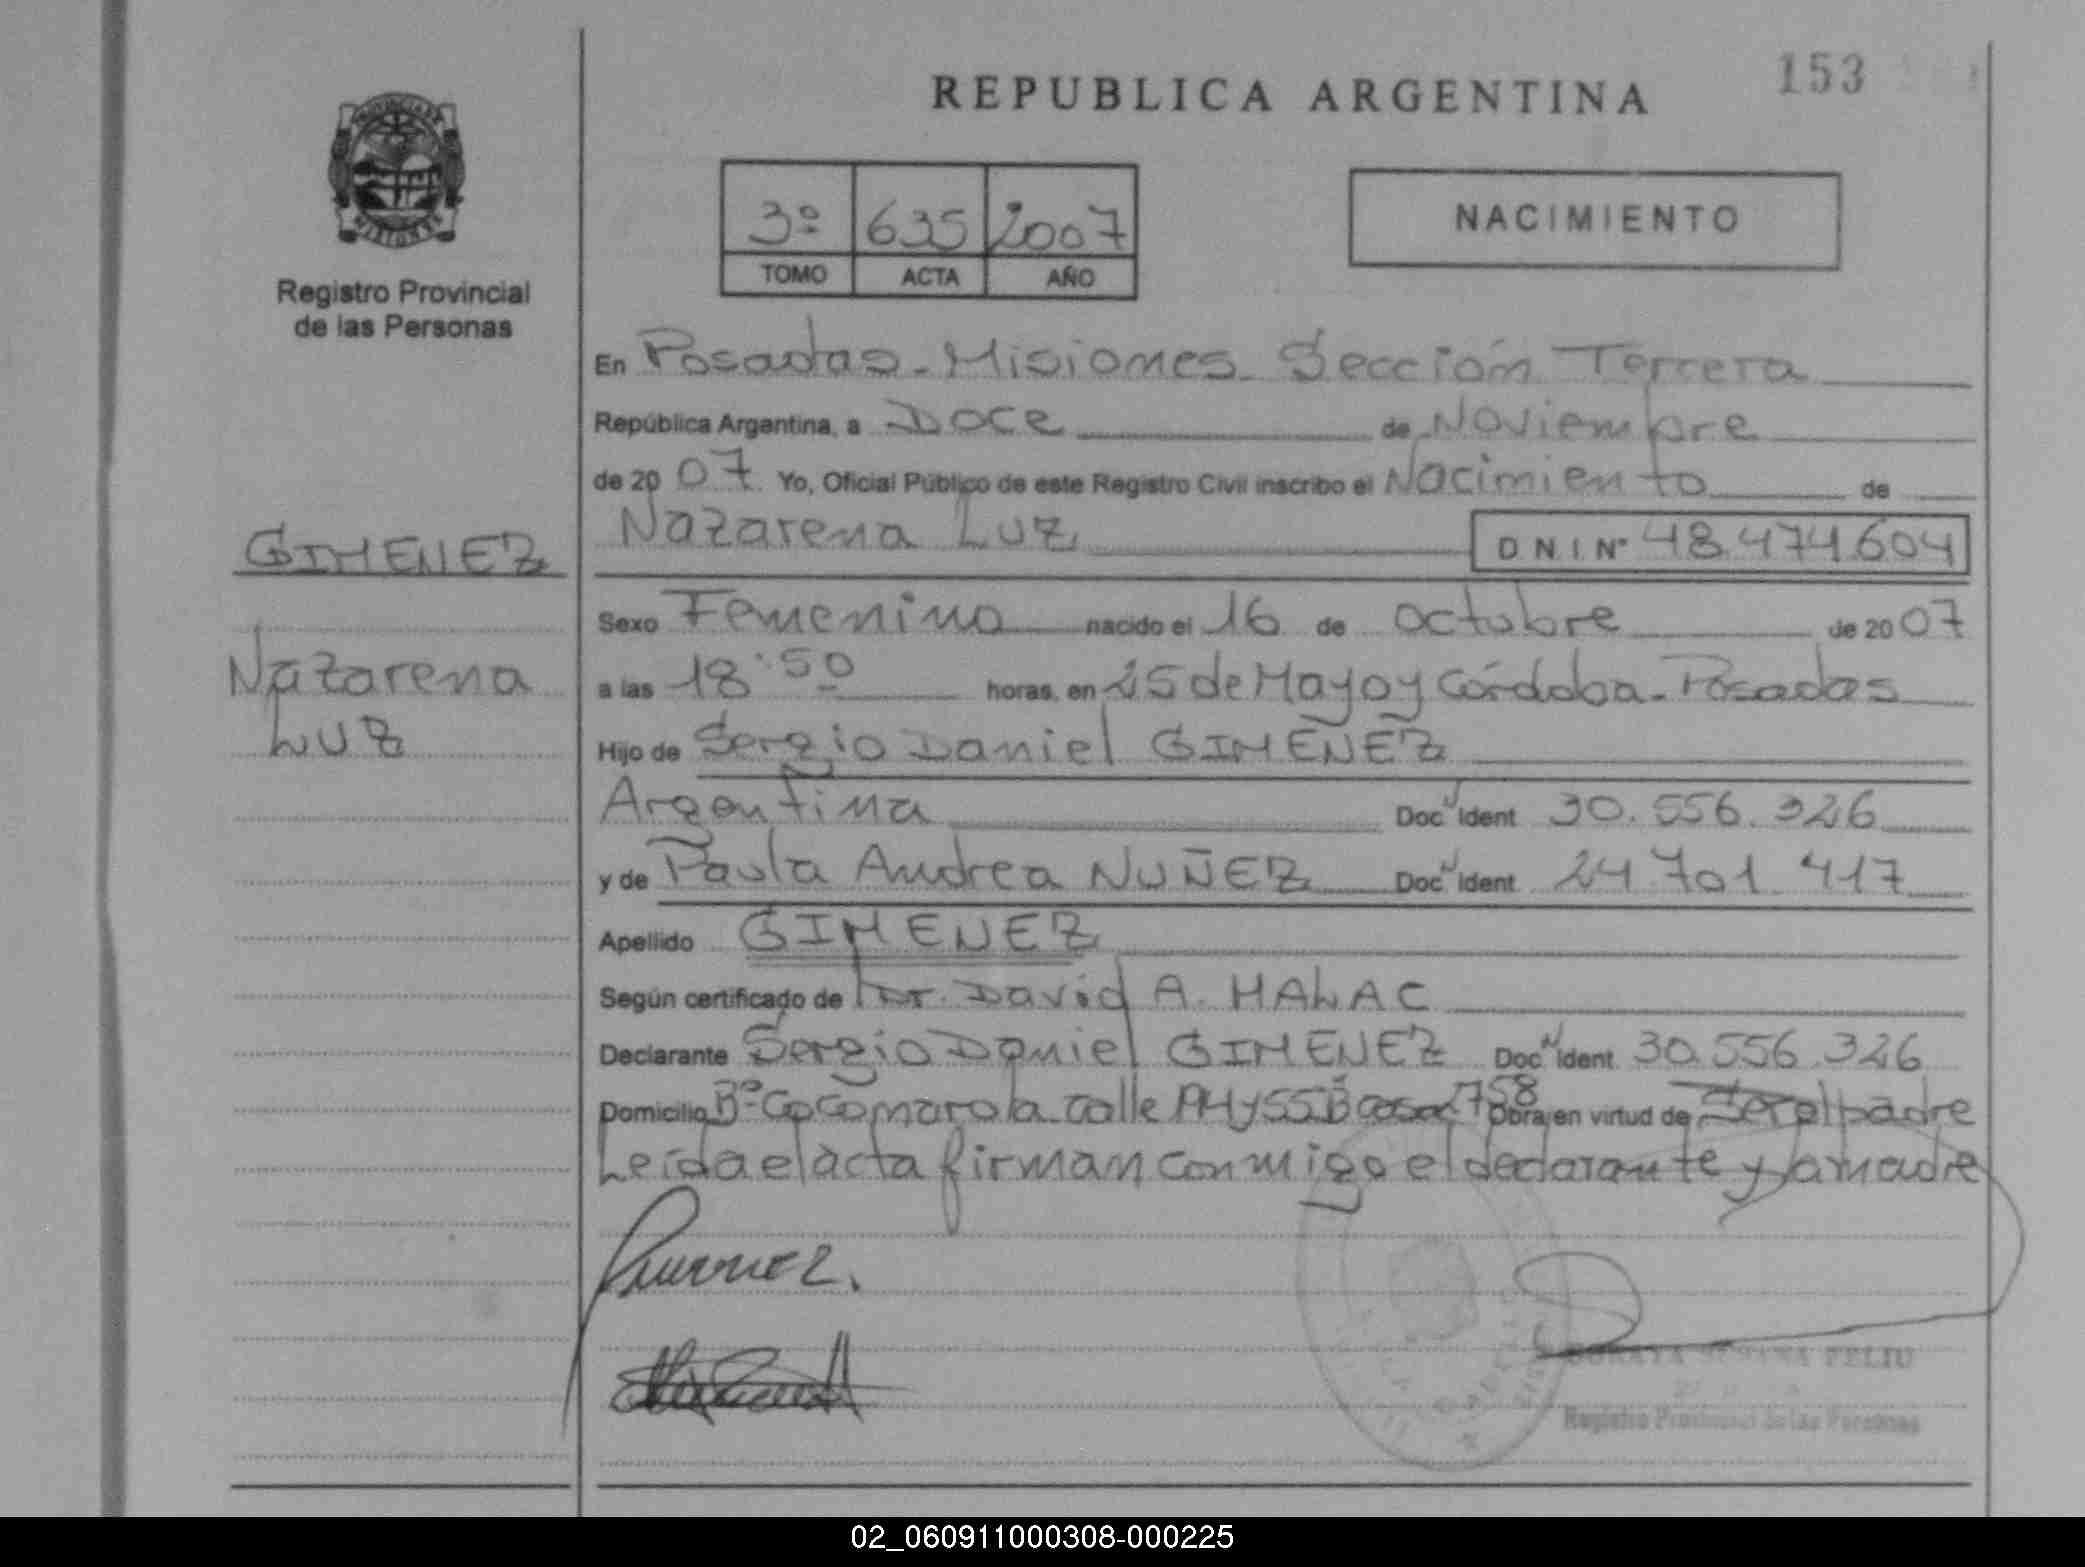 REPUBLICA ARGENTINA
153
PROVINCIA DE
MISIONES
Registro Provincial
de las Personas
3º 635 2007
TOMO ACTA AÑO
NACIMIENTO
En Posadas - Misiones - Sección Tercera
República Argentina, a Doce de Noviembre
de 2007. Yo, Oficial Público de este Registro Civil inscribo el Nacimiento de
Nazarena Luz D N I. Nº 48.474.604
GIMENEZ
Nazarena
Luz
Sexo Femenino nacido el 16 de octubre de 2007
a las 18:50 horas, en 25 de Mayo y Córdoba - Posadas
Hijo de Sergio Daniel GIMENEZ
Argentina Doc N Ident 30.556.326
y de Paula Andrea NUÑEZ Doc N Ident 24.701.417
Apellido GIMENEZ
Según certificado de Dr. David A. MALAC
Declarante Sergio Daniel GIMENEZ Doc N Ident. 30.556.326
Domicilio Bº Cocomarola calle casa 758 Obra en virtud de Ser el padre
Leída el acta firman conmigo el declarante y la madre
SUSANA FELIU
Registro Provincial de las Personas
02_060911000308-000225